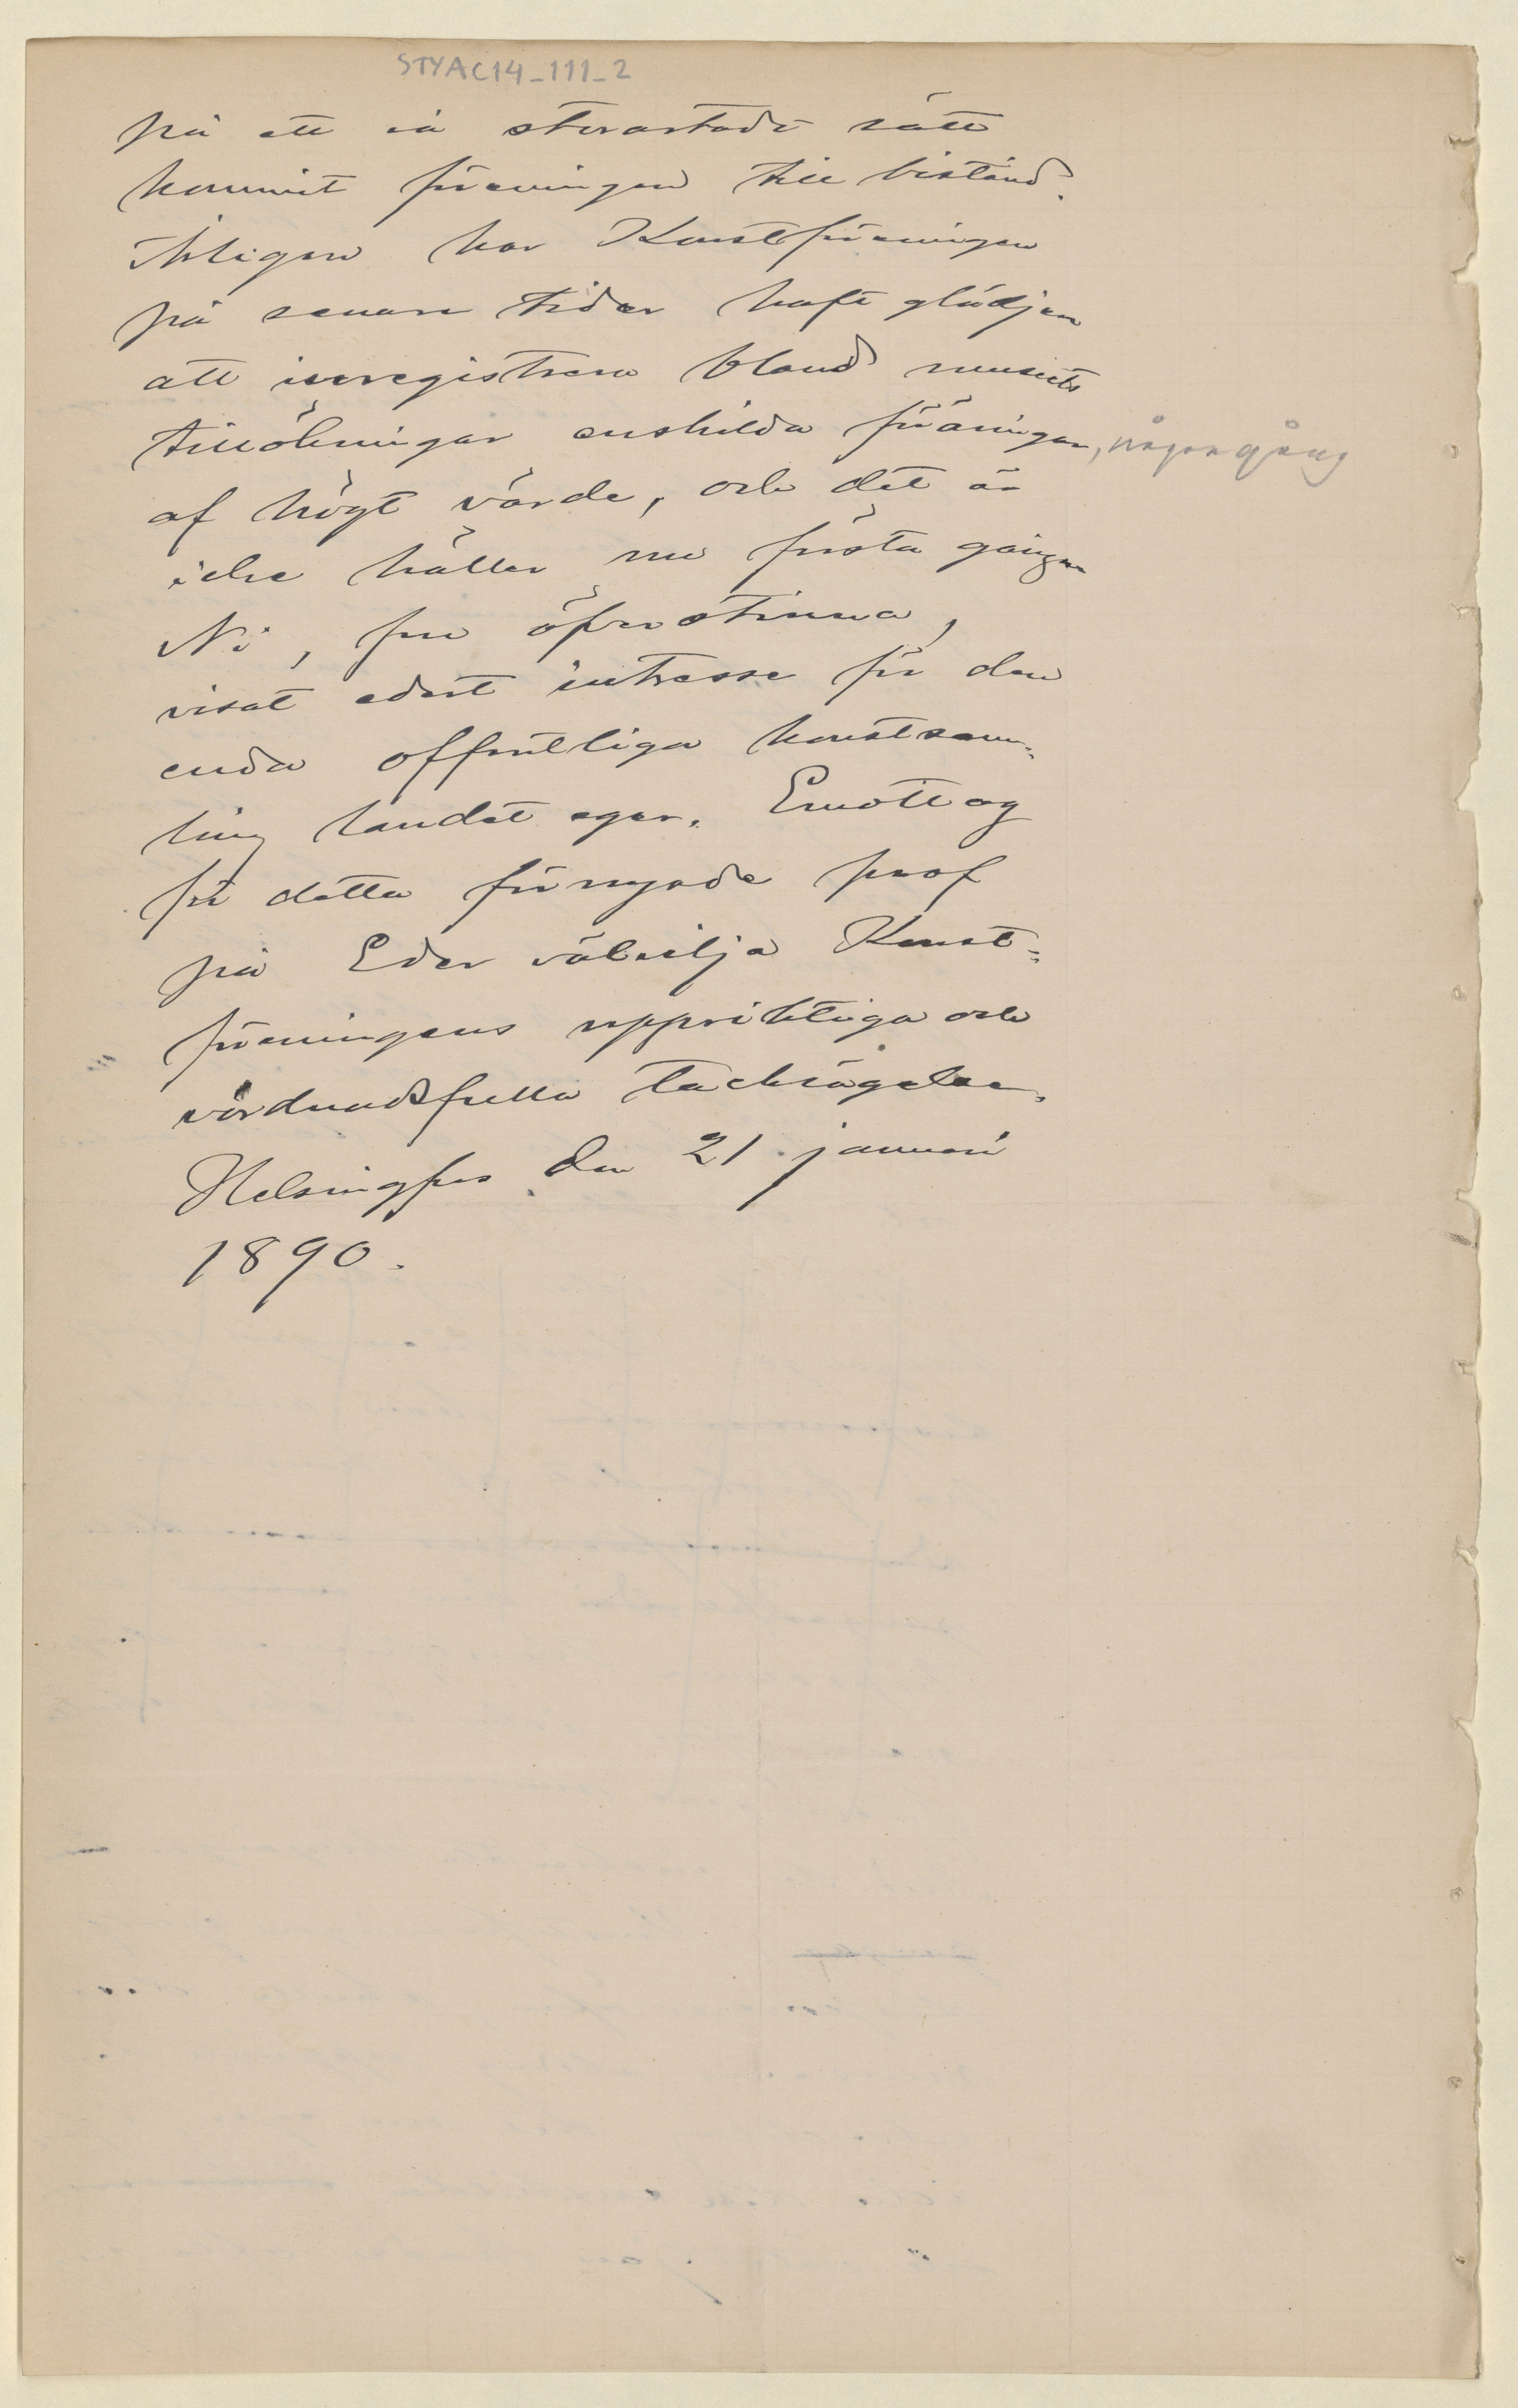 STYAC14_111_2
på ett så storartadt sätt
kommit föreningen till bistånd.
Årligen har Konstföreningen
på senare tider haft glädjen
att inregistrera bland museets
tillökningar enskilda föräringar, någon gång
af högt värde, och det är
icke häller nu första gången
Ni, fru öfverstinna,
visat edert intresse för den
enda offentliga konstsam-
ling landet eger. Emottag
för detta förnyade prof
på Eder välvilja Konst-
föreningens uppriktiga och
vördnadsfulla tacksägelse.
Helsingfors den 21 januari
1890.